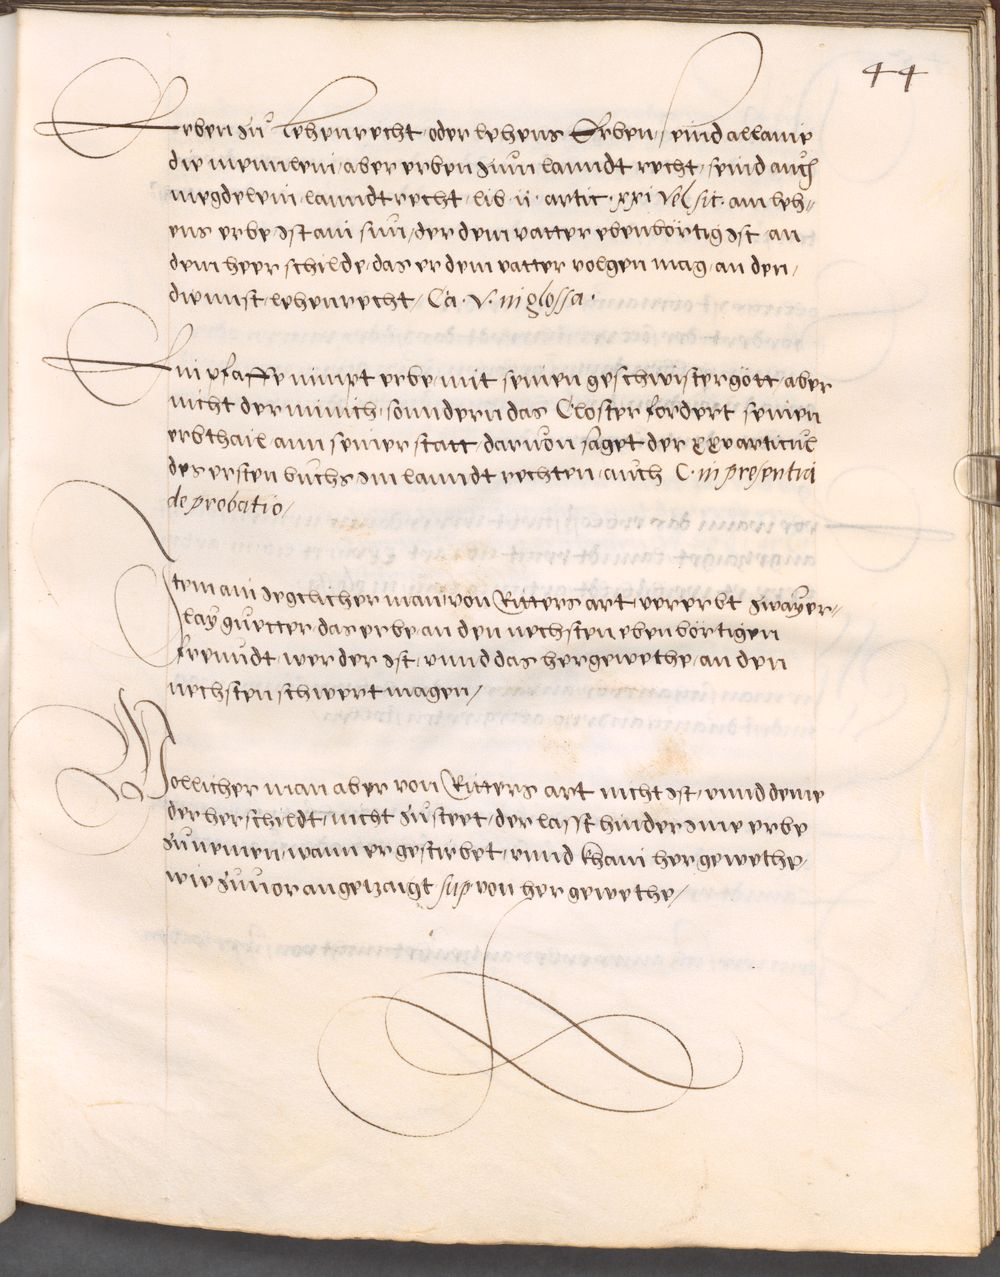 44
Erben zu Lehenrecht oder lehens Erben, seind allaine
die mennlein, aber erben zum lanndt recht, seind auch
megdelein, lanndt recht, lib. ii. artic. xxi vel sic. ain leh-
ens erbe ist ain sun, der dem vatter ebenbörtig ist an
dem heerschilde, das er dem vatter volgen mag, an den,
diennst, lehenrecht, Ca. v. in glossa.
Ein pfaffe nimpt erbe mit seinen geschwistergött, aber
nicht der minich, sonndern das Closter fordert seinen
erbthail ann seiner statt, daruon saget der xxv articul
des ersten buchs im lanndt rechten, auch C. in presentia
de probatio,
Item ain yegclicher man von Ritters art, vererbt zwayer-
lay guetter, das erbe an den nechsten ebenbörtigen
freundt, wer der ist, vnnd das hergewethe, an den
nechsten schwert magen,
Wöllicher man aber von Ritters art nicht ist, vnnd deme
der herschildt, nicht zusteet, der lasst hinder ime erbe
zu nemen, wann er gestirbet, vnnd khain hergewethe,
wie zuuor angetzaigt sup von hergewethe,